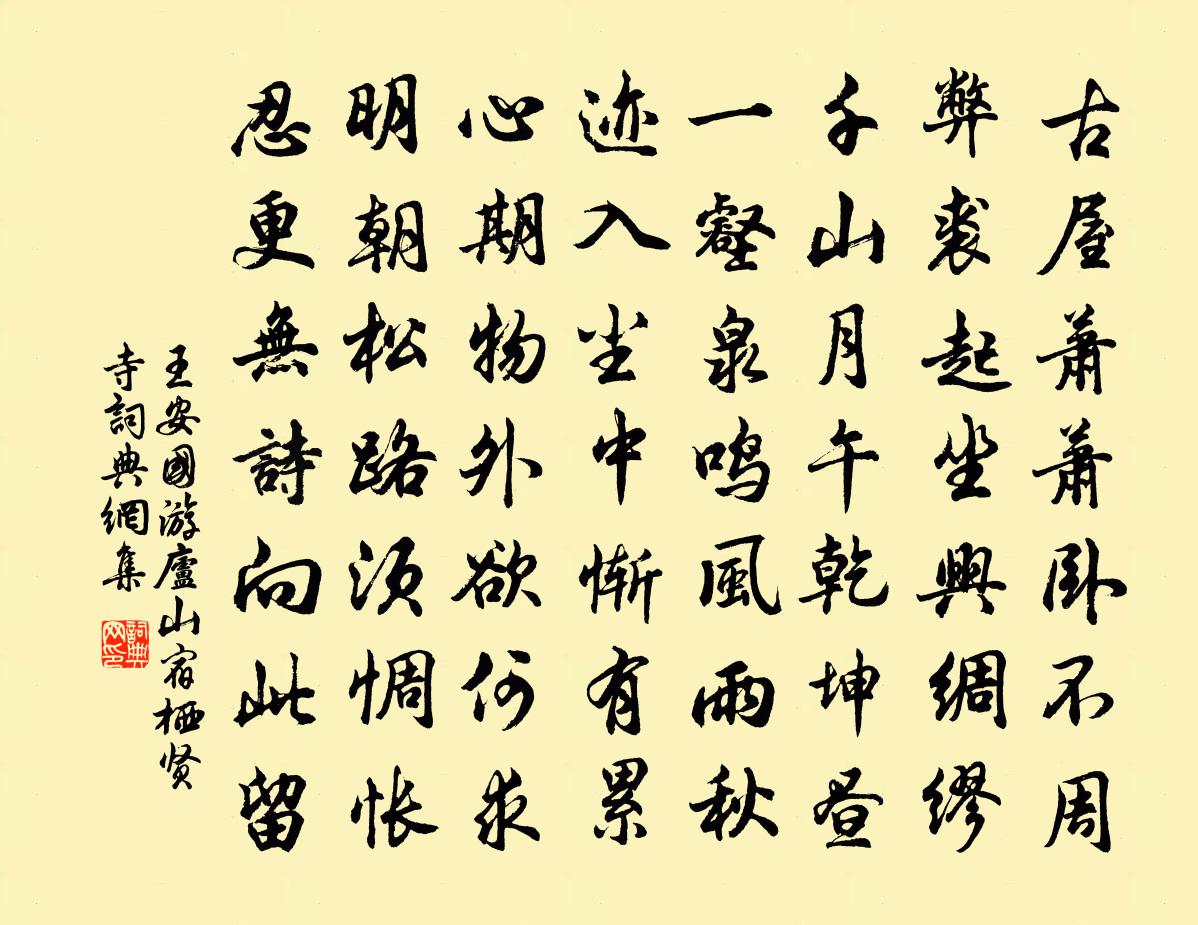 古屋蕭蕭卧不周
弊裘起坐興綢繆
千山月午乾坤昼
一壑泉鸣風雨秋
迹入尘中惭有累
心期物外欲何求
明朝松路须惆怅
忍更無詩向此留
王安國游廬山宿栖贤
寺詞典網集
詞典
网印